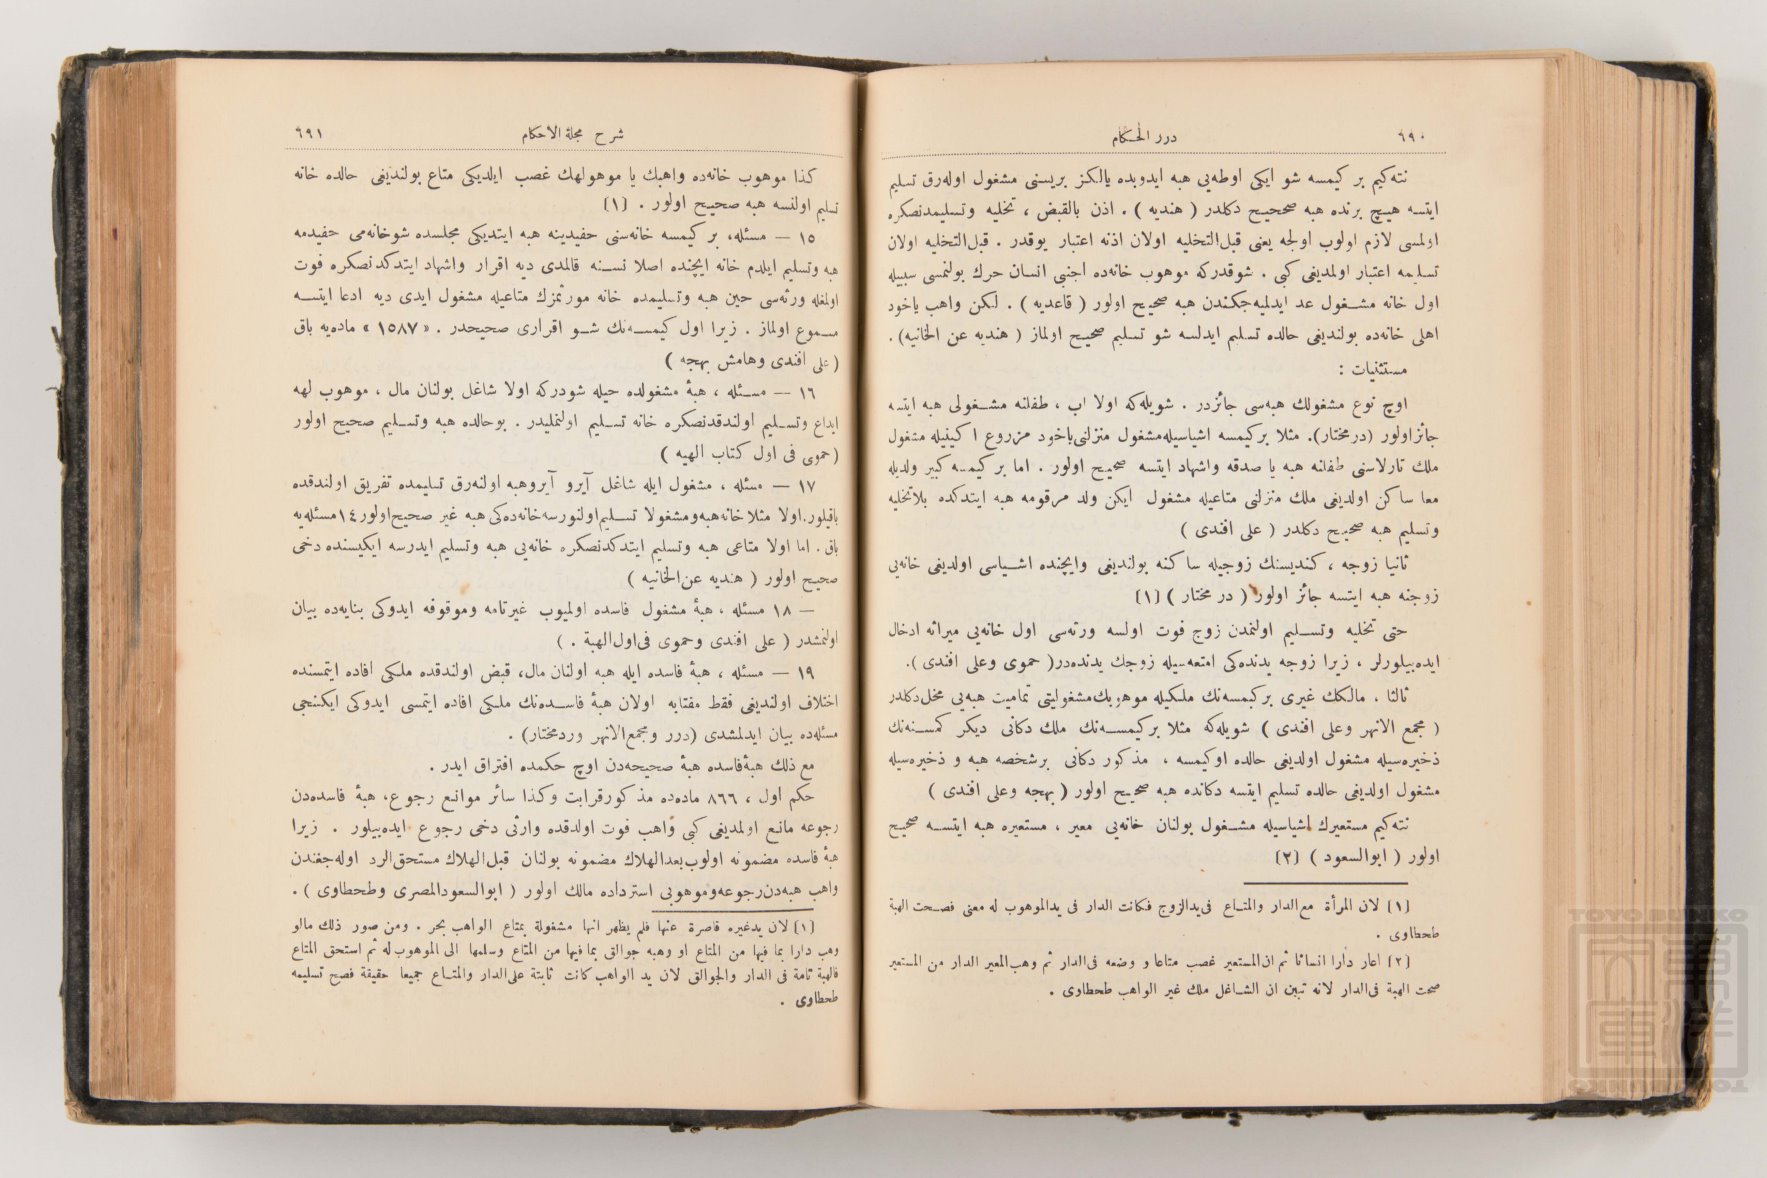 ٦٩٠
درر الحكام
نته‌كيم بر كيمسه شو ايكى اوطه‌يى هبه ايدوبده يالكز بريسنى مشغول اوله‌رق تسليم
ايتسه هيچ برنده هبه صحيح دكلدر ( هنديه ) . اذن بالقبض ، تخليه وتسليمدنصكره
اولمسى لازم اولوب اولجه يعنى قبل‌التخليه اولان اذنه اعتبار يوقدر . قبل‌التخليه اولان
تسليمه اعتبار اولمديغى كبى . شوقدركه موهوب خانه‌ده اجنبى انسان حرك بولنمسى سببيله
اول خانه مشغول عد ايدلميه‌جكندن هبه صحيح اولور ( قاعديه ) . لكن واهب ياخود
اهلى خانه‌ده بولنديغى حالده تسليم ايدلسه شو تسليم صحيح اولماز ( هنديه عن الخانيه) .
مستثنيات :
اوچ نوع مشغولك هبه‌سى جائزدر . شويله‌كه اولا اب ، طفلنه مشغولى هبه ايتسه
جائز اولور (درمختار). مثلا بر كيمسه اشياسيله مشغول منزلنى ياخود مزروع اكينيله مشغول
ملك تارلاسنى طفلنه هبه يا صدقه واشهاد ايتسه صحيح اولور . اما بر كيمسه كبير ولديله
معا ساكن اولديغى ملك منزلنى متاعيله مشغول ايكن ولد مرقومه هبه ايتدكده بلاتخليه
وتسليم هبه صحيح دكلدر ( على افندى )
ثانيا زوجه ، كنديسنك زوجيله ساكنه بولنديغى وايچنده اشياسى اولديغى خانه‌يى
زوجنه هبه ايتسه جائز اولور ( در مختار ) [١]
حتى تخليه وتسليم اولنمدن زوج فوت اولسه ورثه‌سى اول خانه‌يى ميراثه ادخال
ايده‌بيلورلر ، زيرا زوجه يدنده‌كى امتعه‌سيله زوجك يدنده‌در ( حموى وعلى افندى ).
ثالثا ، مالكك غيرى بر كيمسه‌نك ملكيله موهوبك مشغوليتى تماميت هبه‌يى مخل دكلدر
( مجمع الانهر وعلى افندى ) شويله‌كه مثلا بر كيمسه‌نك ملك دكانى ديكر كمسنه‌نك
ذخيره‌سيله مشغول اولديغى حالده اوكيمسه ، مذكور دكانى برشخصه هبه و ذخيره‌سيله
مشغول اولديغى حالده تسليم ايتسه دكانده هبه صحيح اولور ( بهجه وعلى افندى )
نته‌كيم مستعيرك اشياسيله مشغول بولنان خانه‌يى معير ، مستعيره هبه ايتسه صحيح
اولور ( ابوالسعود ) [٢]
[١] لان المرأة مع الدار والمتاع فى يد الزوج فكانت الدار فى يد الموهوب له معنى فصحت الهبة
طحطاوى .
[٢] اعار دارا انسانا ثم ان المستعير غصب متاعا و وضعه فى الدار ثم وهب المعير الدار من المستعير
صحت الهبة فى الدار لانه تبين ان الشاغل ملك غير الواهب طحطاوى .
شرح مجلة الاحكام
٦٩١
كذا موهوب خانه‌ده واهبك يا موهولهك غصب ايلديكى متاع بولنديغى حالده خانه
تسليم اولنسه هبه صحيح اولور . [١]
١٥ — مسئله، بر كيمسه خانه‌سنى حفيدينه هبه ايتديكى مجلسده شوخانه‌مى حفيدمه
هبه وتسليم ايلدم خانه ايچنده اصلا نسنه قالمدى ديه اقرار واشهاد ايتدكدنصكره فوت
اولمغله ورثه‌سى حين هبه وتسليمده خانه مورثمزك متاعيله مشغول ايدى ديه ادعا ايتسه
مسموع اولماز . زيرا اول كيمسه‌نك شو اقرارى صحيحدر . « ١٥٨٧ » ماده‌يه باق
(على افندى وهامش بهجه )
١٦ — مسئله ، هبهٔ مشغولده حيله شودركه اولا شاغل بولنان مال ، موهوب لهه
ايداع وتسليم اولندقدنصكره خانه تسليم اولنمليدر . بوحالده هبه وتسليم صحيح اولور
(حموى فى اول كتاب الهبه )
١٧ — مسئله ، مشغول ايله شاغل آيرو آيروهبه اولنه‌رق تسليمده تفريق اولندقده
باقيلور. اولا مثلا خانه هبه ومشغولا تسليم اولنورسه خانه‌ده‌كى هبه غير صحيح اولور ١٤ مسئله‌يه
باق . اما اولا متاعى هبه وتسليم ايتدكدنصكره خانه‌يى هبه وتسليم ايدرسه ايكيسنده دخى
صحيح اولور ( هنديه عن‌الخانيه )
— ١٨ مسئله ، هبهٔ مشغول فاسده اولميوب غيرتامه وموقوفه ايدوكى بنايه‌ده بيان
اولنمشدر ( على افندى وحموى فى‌اول‌الهبة . )
١٩ — مسئله ، هبهٔ فاسده ايله هبه اولنان مال، قبض اولندقده ملكى افاده ايتمسنده
اختلاف اولنديغى فقط مفتابه اولان هبهٔ فاسده‌نك ملكى افاده ايتمسى ايدوكى ايكنجى
مسئله‌ده بيان ايدلمشدى (درر ومجمع‌الانهر وردمختار) .
مع ذلك هبهٔ فاسده هبهٔ صحيحه‌دن اوچ حكمده افتراق ايدر .
حكم اول ، ٨٦٦ ماده‌ده مذكور قرابت وكذا سائر موانع رجوع، هبهٔ فاسده‌دن
رجوعه مانع اولمديغى كبى واهب فوت اولدقده وارثى دخى رجوع ايده‌بيلور . زيرا
هبهٔ فاسده مضمونه اولوب بعدالهلاك مضمونه بولنان قبل‌الهلاك مستحق‌الرد اوله‌جغندن
واهب هبه‌دن رجوعه وموهوبى استرداده مالك اولور ( ابوالسعودالمصرى وطحطاوى ) .
[١] لان يد غيره قاصرة عنها فلم يظهر انها مشغولة بمتاع الواهب بحر . ومن صور ذلك مالو
وهب دارا بما فيها من المتاع او وهبه جوالق بما فيها من المتاع وسلمها الى الموهوب له ثم استحق المتاع
فالهبة تامة فى الدار والجوالق لان يد الواهب كانت ثابتة على‌الدار والمتاع جميعا حقيقة فصح تسليمه
طحطاوى .
TOYO BUNKO